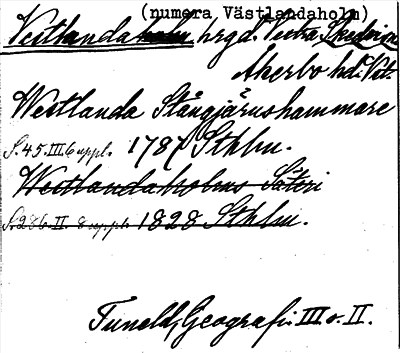 (numera Västlandaholm)
Westlandaholm hrgd. Vestra Skedvi sn
Åkerbo hd. Vstm.
Westlanda Stångjärnshammare
S. 45. III. 6 uppl. 1787 Sthlm.
Westlandaholms Säteri
S. 286. II. 8 uppl. 1828 Sthlm.
Tuneld, Geografi. III o. II.